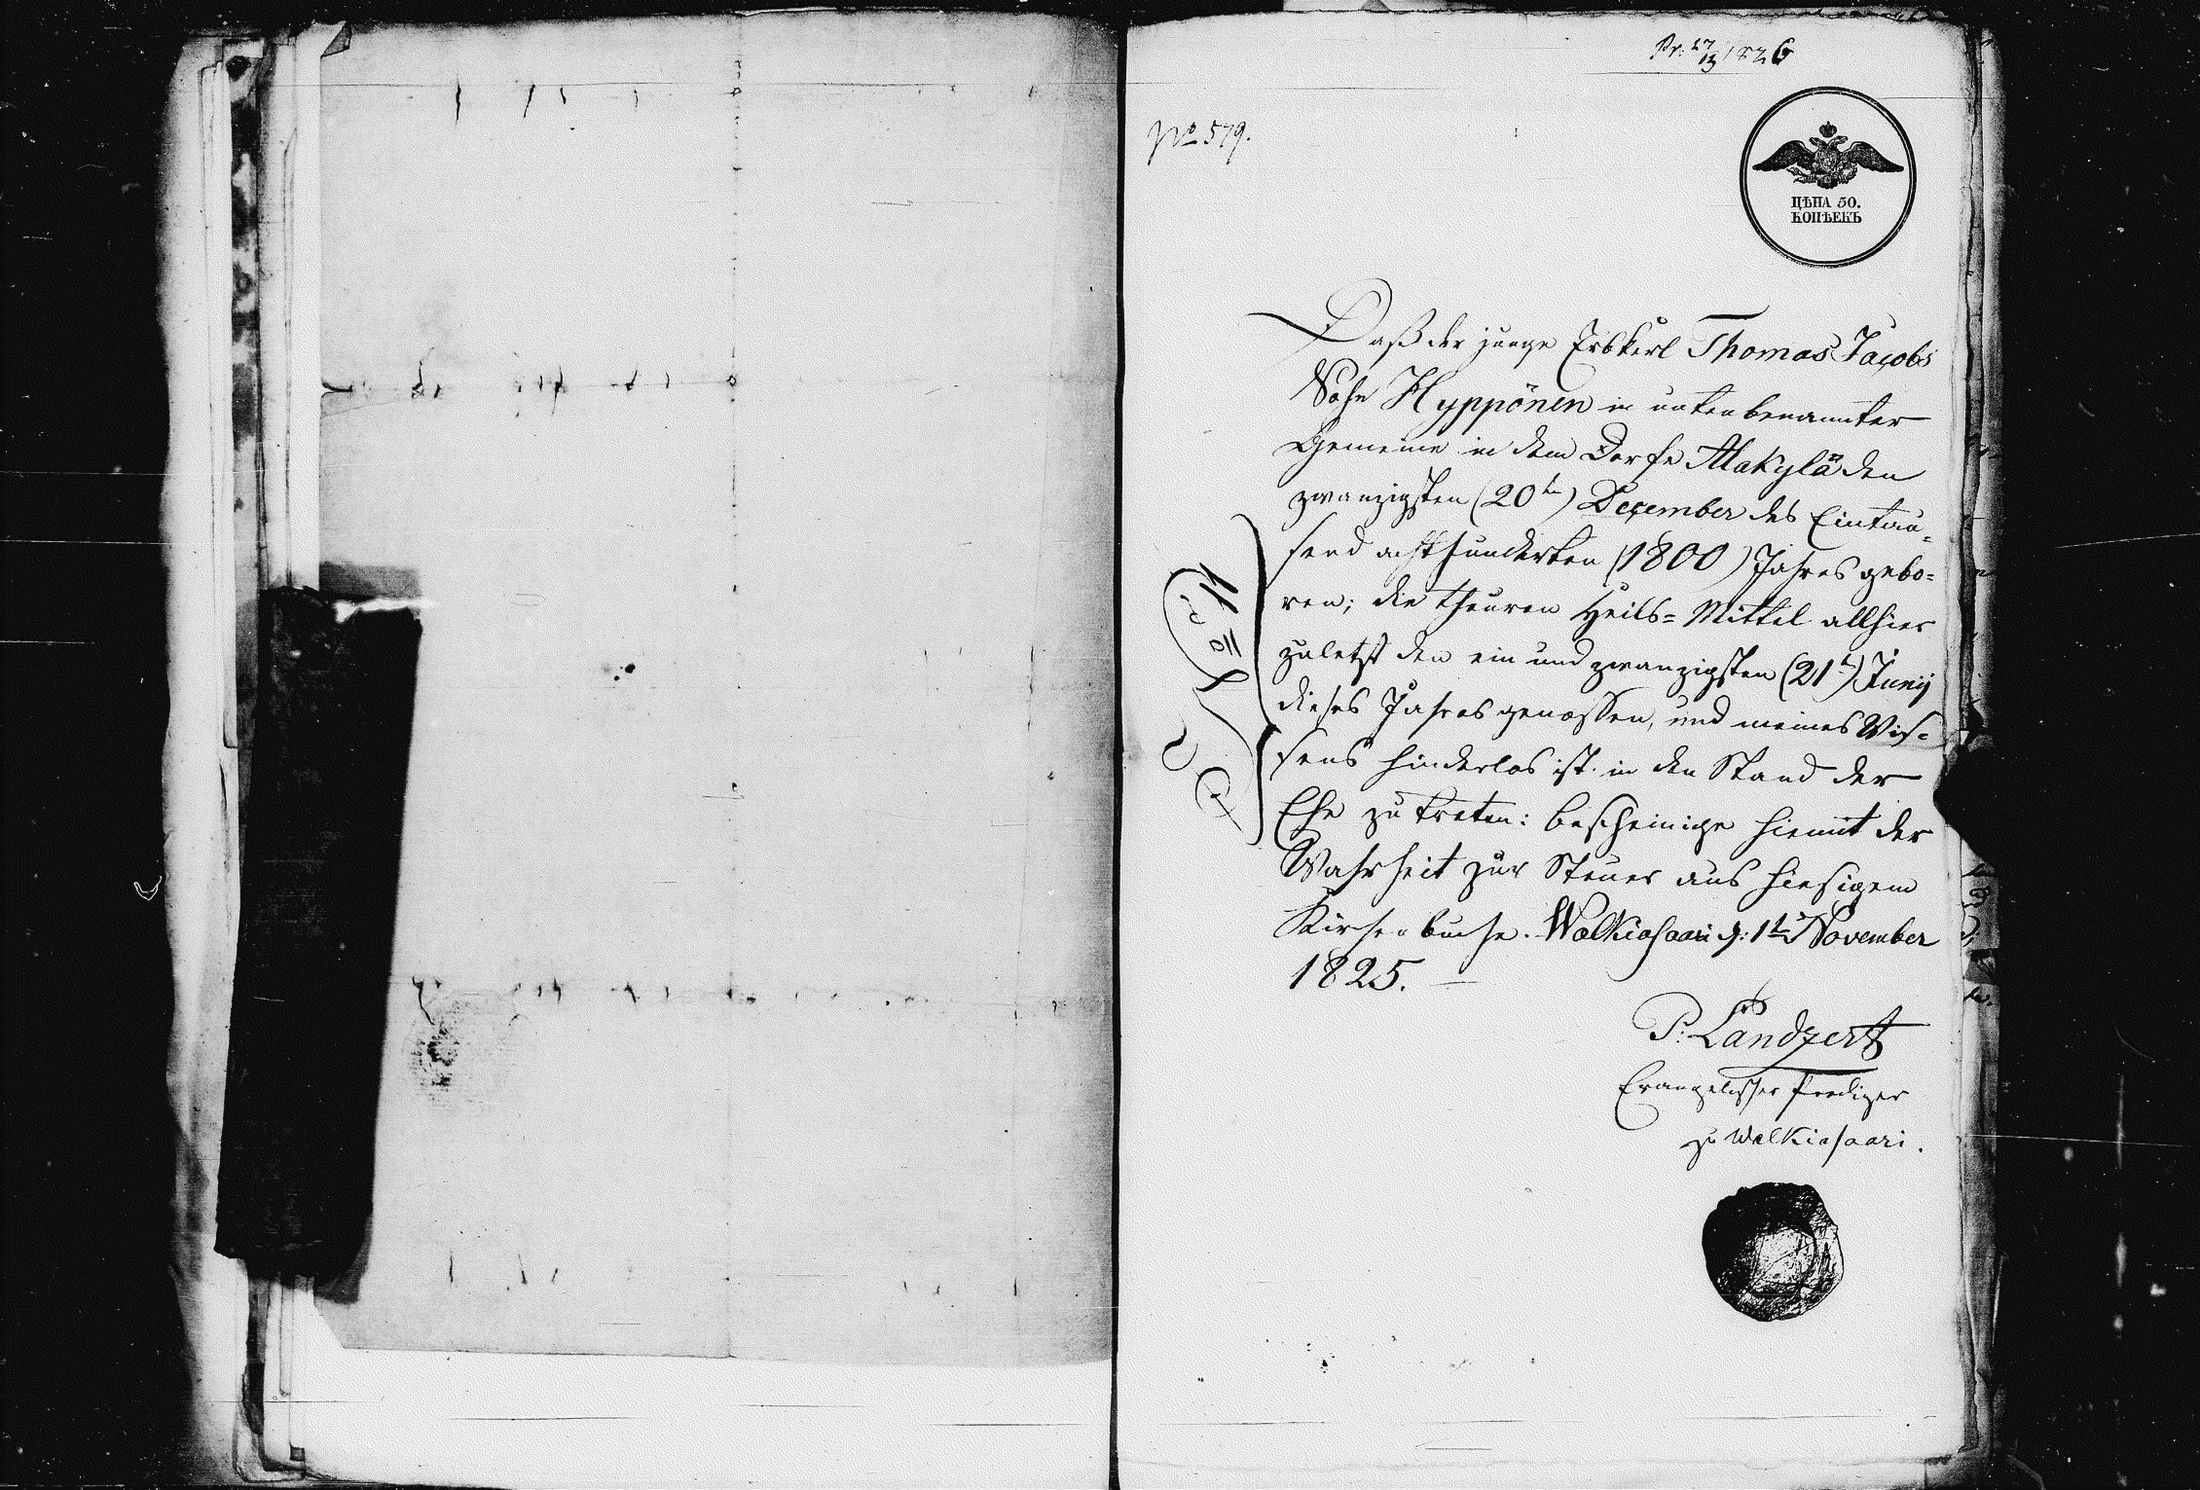 Pr: 27/13 1826
No 579.
ЦѢНА 50.
КОПѢЕКЪ
Daß der junge Erbkerl Thomas Jacobs
Sohn Hyppönen in untenbenannter
Gemeine in dem Dorfe Alakylä den
zwanzigsten (20ten) December des Eintau=
send achthunderten (1800) Jahres gebo=
ren; die theuren Heils=Mittel allhier
zuletzt den ein und zwanzigsten (21t) Junij
dieses Jahres genossen, und meines Wis=
sens hinderlos ist in den Stand der
Ehe zu treten: bescheinige hiemit der
Wahrheit zur Steuer aus hiesigem
Kirchenbuche. Walkiasaari d: 1ten November
1825.
P: Landzert
Evangelischer Prediger
zu Walkiasaari.